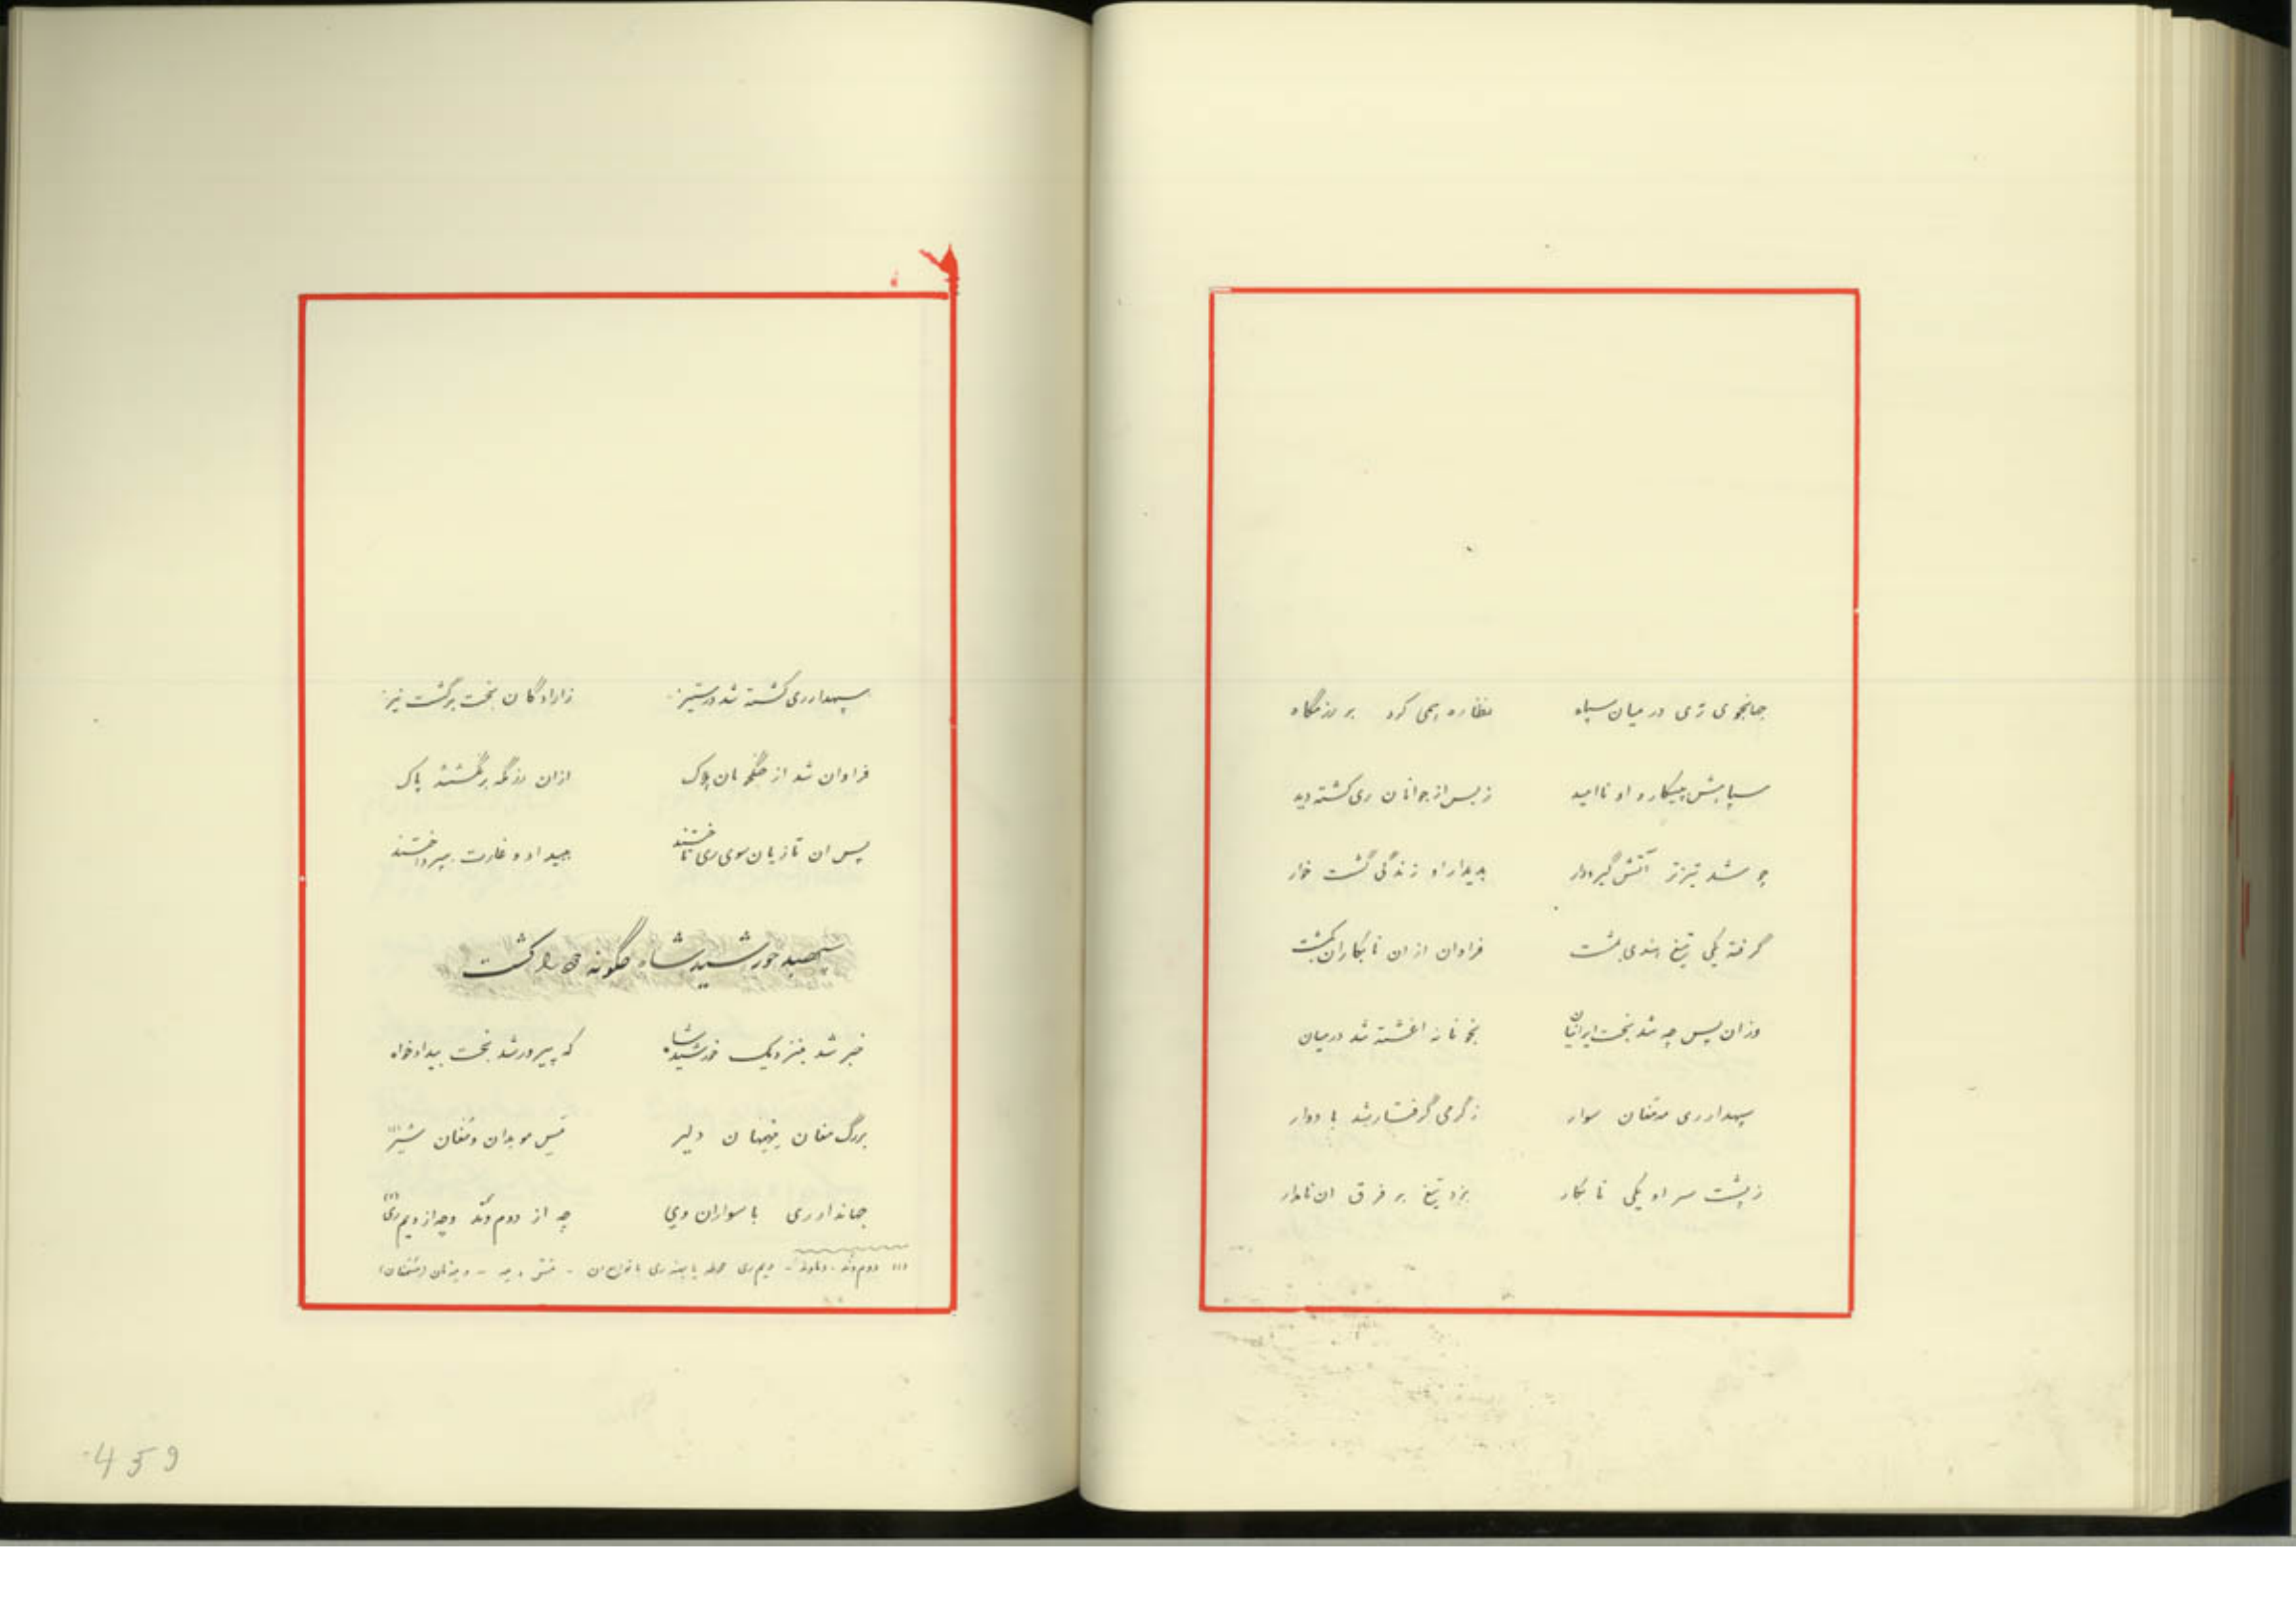 جهانجوی ری در میان سپاه نظاره همی کرد بر رزمگاه
سپاهش به پیکار و او ناامید ز بس از جوانان ری کشته دید
چو شد تیزتر آتش گیرودار بدیدار او زندگی گشت خوار
گرفته یکی تیغ هندی بمشت فراوان ازان نابکاران بکشت
وزان پس چه شد بخت ایرانیان بخونابه اغشته شد درمیان
سپهدار ری مه مغان سوار ز گرمی گرفتار شد با دوار
ز پشت سر او یکی نابکار بزد تیغ بر فرق ان نامدار
سپهدار ری کشته شد در ستیز ز ازادگان بخت برگشت نیز
فراوان شد از جنگجویان هلاک ازان رزمگه برگشتند پاک
پس ان تازیان سوی ری تاختند به بیداد و غارت بپرداختند
سپهبد خورشید شاه چگونه را کشت
خبر شد بنزدیک خورشید شاه که پیروز شد بخت بیدادخواه
بزرگ مغان پنهان دلیر مس موبدان و مغان شیز
جهاندار ری با سواران وی چه از دوم وند وچه از ویم ری (۱)
(۱) دوم وند - دماوند - ویم ری
459